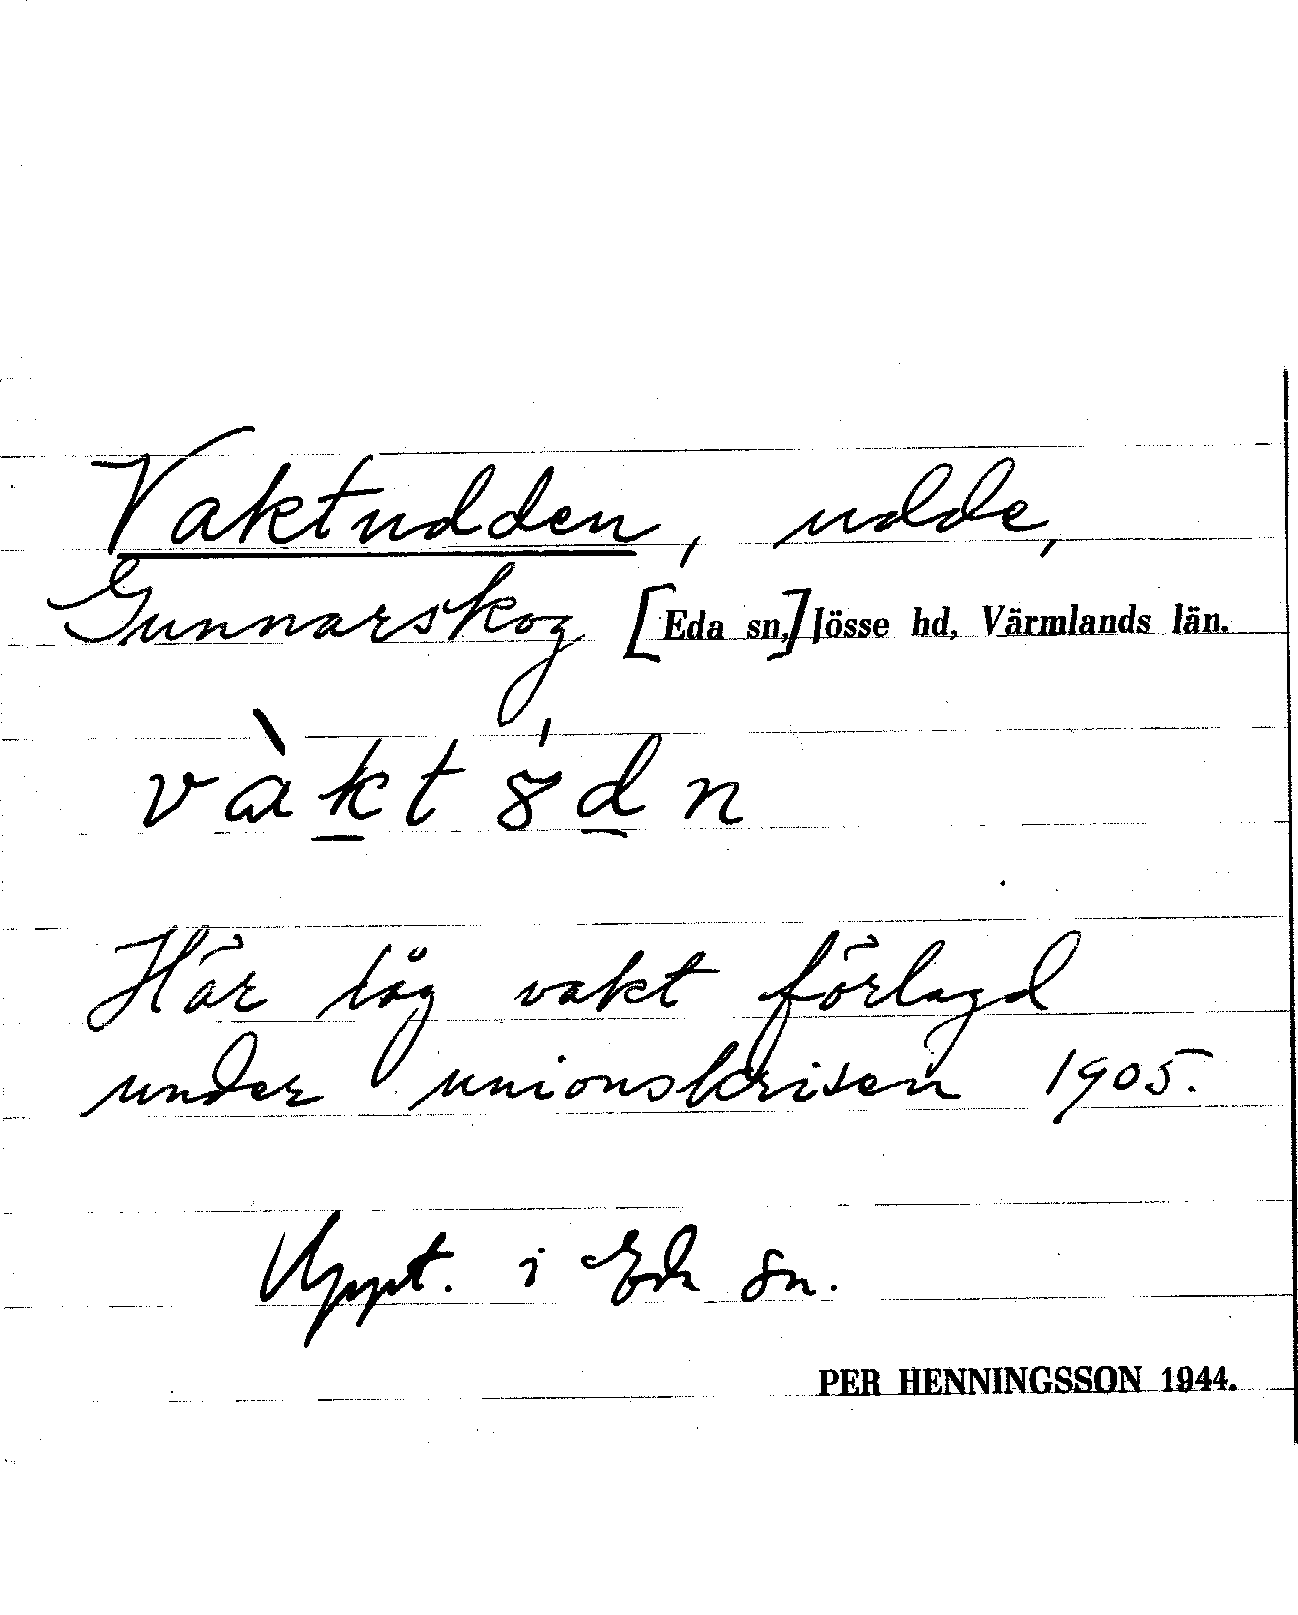 Vaktudden, udde,
Gunnarskog [Eda sn,] Jösse hd, Värmlands län.
vàk̲t 8́d̲n
Här låg vakt förlagd
under unionskrisen 1905.
Uppt. i Eda sn.
PER HENNINGSSON 1944.